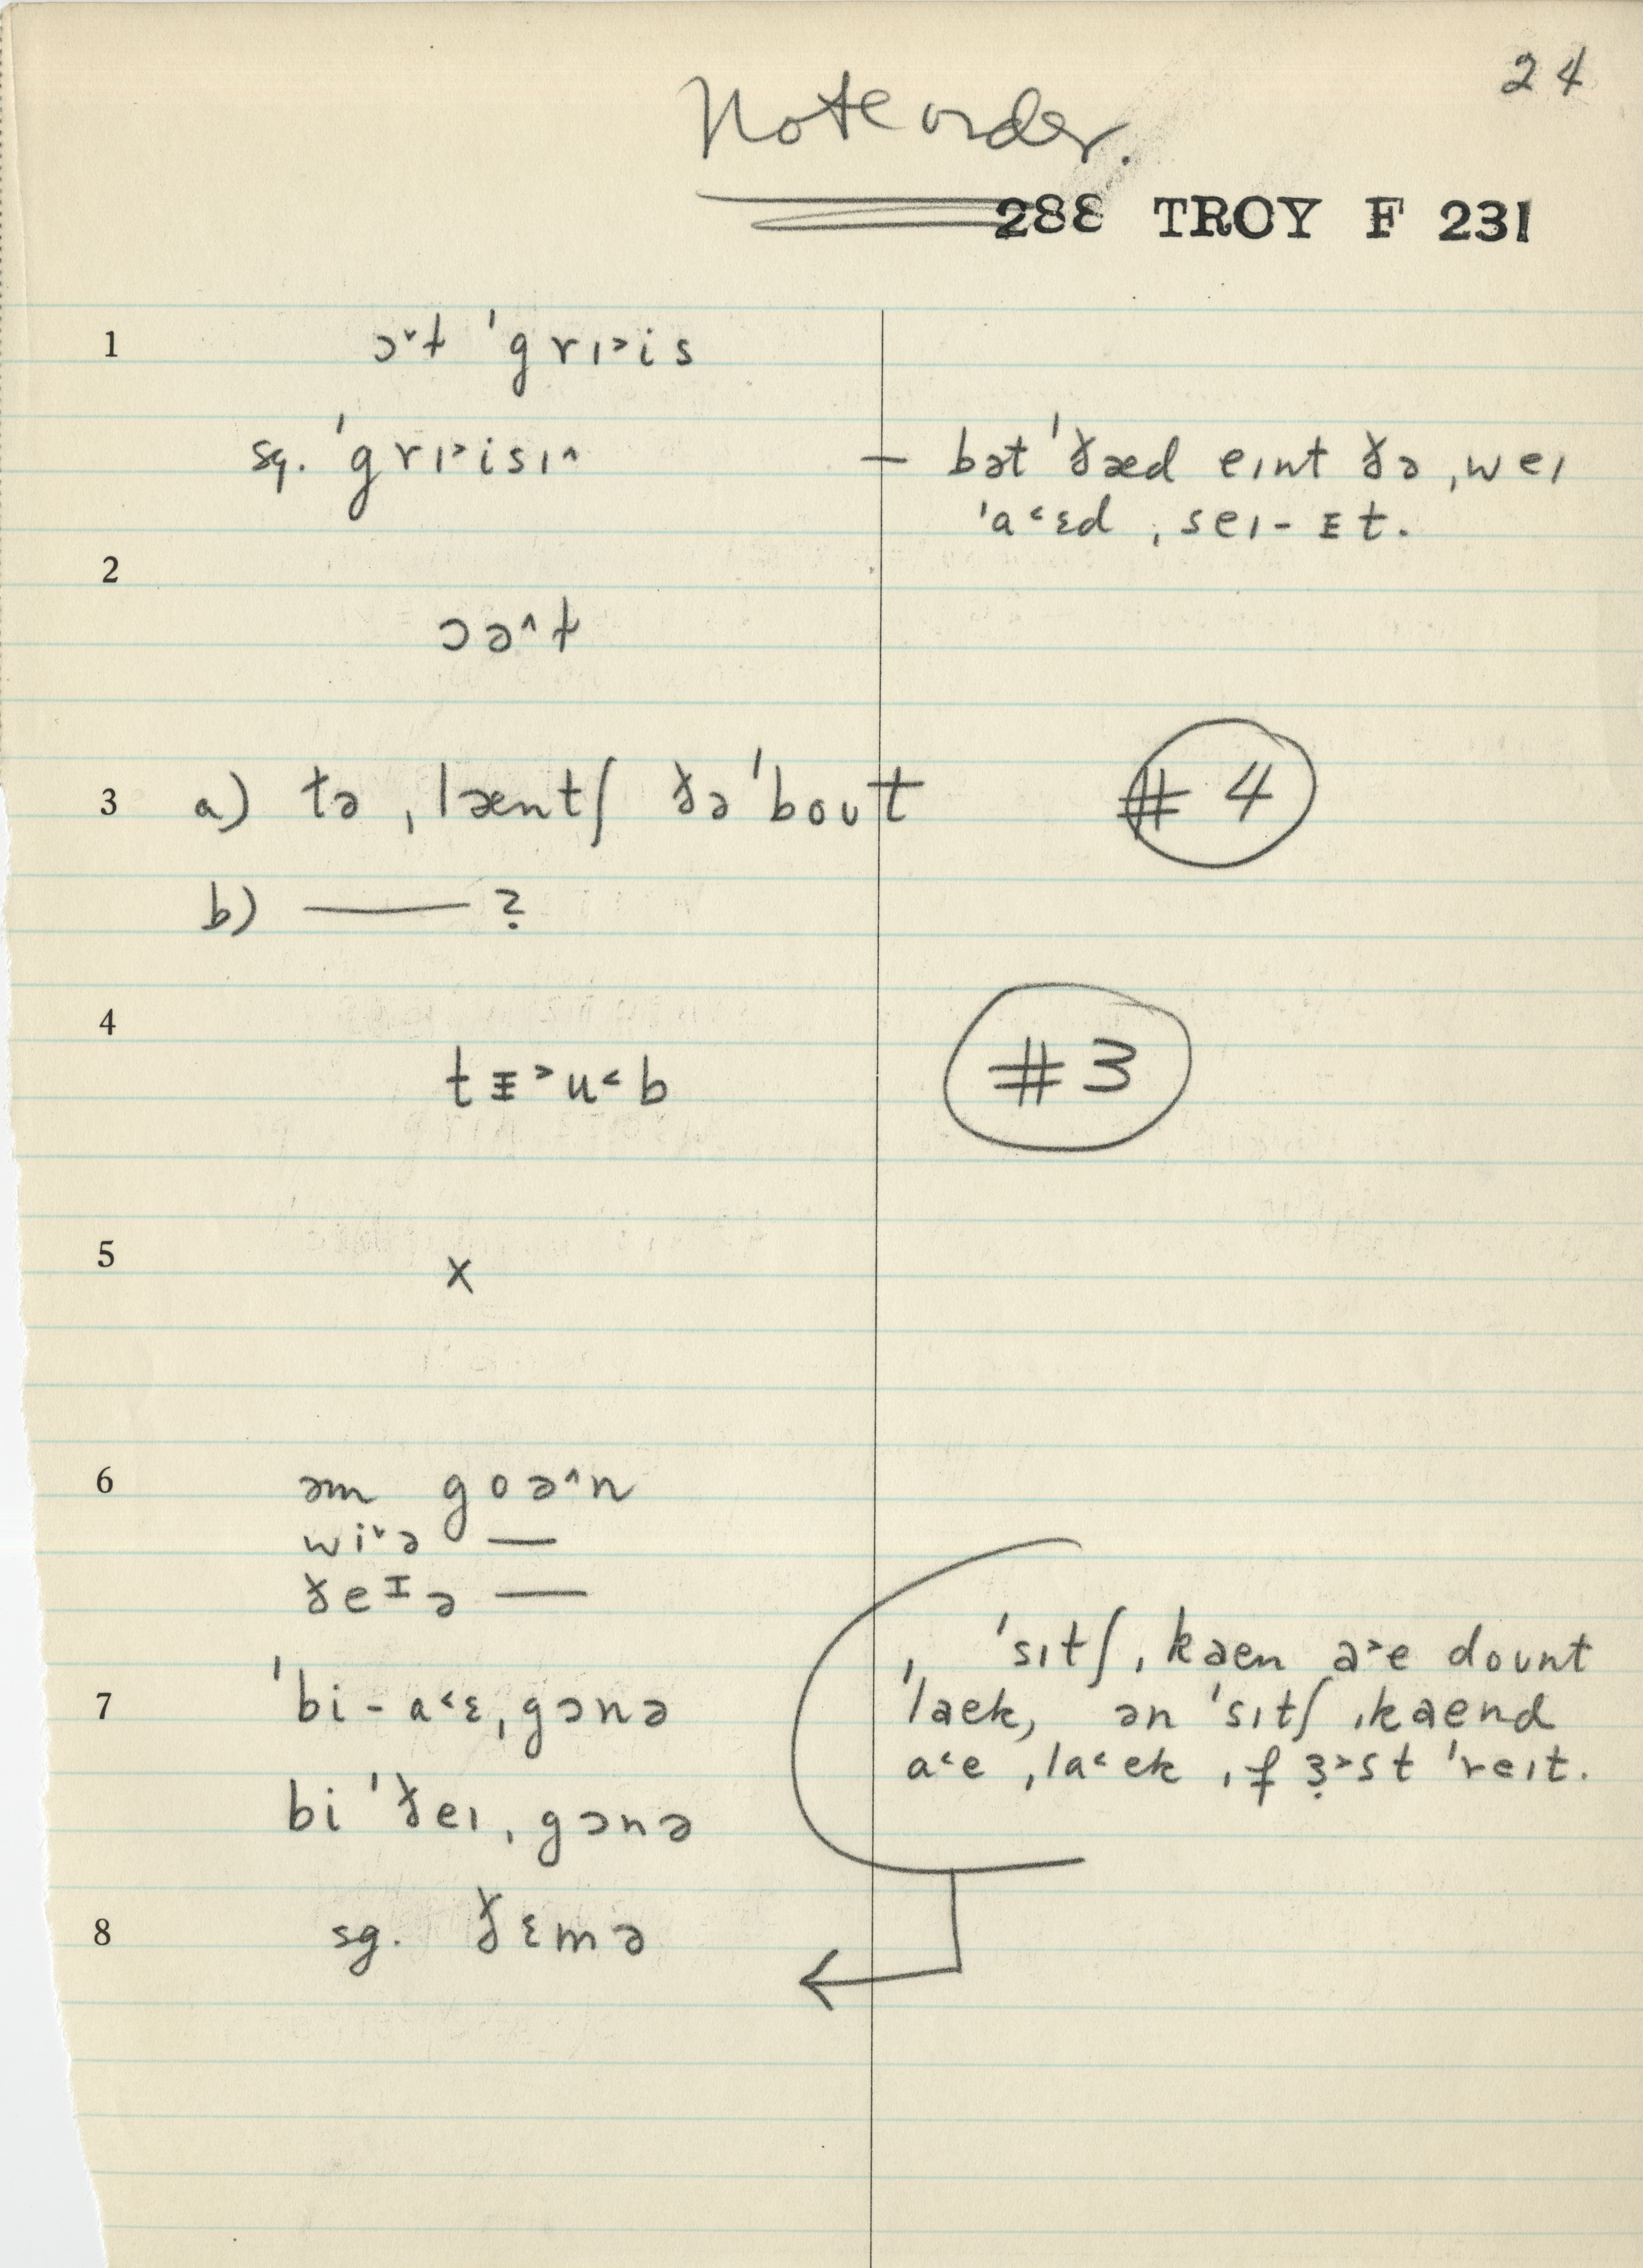 24
Note order.
288 TROY F 231
1 ɔˇɫ ˈgrɪ˃is
sg. ˈgrɪ˃isɪ˄ — bət ˈðæd eɪnt ðə ˌweɪ
ˈa˂ɛd ˌseɪ-ᵻt.
2
ɔə˄ɫ
3 a) tə ˌlæntʃ ðə ˈbout # 4
b) —— ?
4
tᵻ˃u˂b # 3
5 x
6 əm goə˄n
wiˇə —
ðeᶦə —
ˈsɪtʃ ˌkaen a˃e dount
7 ˈbi-a˂ɛ ˌgɔnə ˈlaek, ən ˈsɪtʃ ˌkaend
a˂e ˌla˂ek ˌfɜ˃st ˈreɪt.
bi ˈðeɪ ˌgɔnə
8 sg. ðɛmə